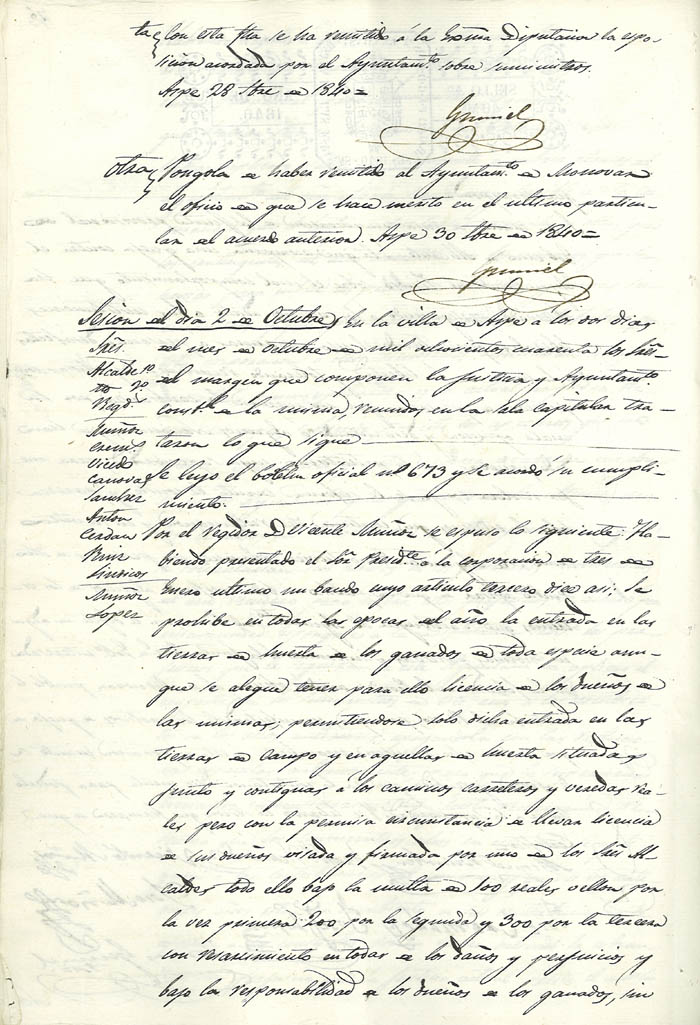 ta Con esta fha se ha remitido á la Exma Diputacion la espo-
sicion acordada por el Ayuntamto sobre suministros.
Aspe 28 Sbre de 1840=
otra Pongola de haber remitido al Ayuntamto de Monovar
el oficio de que se hace merito en el ultimo particu-
lar del acuerdo anterior. Aspe 30 Sbre de 1840=
Sesion del dia 2 de Octubre
En la villa de Aspe á los dos dias
del mes de Octubre de mil ochocientos cuarenta los Sres.
del margen que componen la Justicia y Ayuntamto.
constl. de la misma, reunidos en la sala capitular tra-
taron lo que sigue
Se leyo el boletin oficial nº 673 y se acordó su cumpli-
miento.
Sres.
Alcalde 1º
2º
Regds.
Muñoz
Vicedo
Canovas
Anton
Cerdan
Ruiz
Sindicos
Muñoz
Lopez
Por el regidor D Vicente Muñoz se espuso lo siguiente: Ha-
biendo presentado el Sor Presidte á la corporacion de tres de
Enero ultimo un bando cuyo articulo tercero dice asi; Se
prohibe en todas las epocas del año la entrada en las
tierras de huerta de los ganados de toda especie aun-
que se alegue tener para ello licencia de los dueños de
las mismas; permitiendose solo dicha entrada en las
tierras de campo y en aquellas de huerta situadas
junto y contiguas á los caminos carreteros y veredas rea-
les pero con la permisa circunstancia de llevar licencia
de sus dueños visada y firmada por uno de los Sres Al-
caldes todo ello bajo la multa de 100 reales vellon por
la vez primera 200 por la segunda y 300 por la tercera
con resarcimiento en todas de los daños y perjuicios y
bajo la responsabilidad de los dueños de los ganados, sin